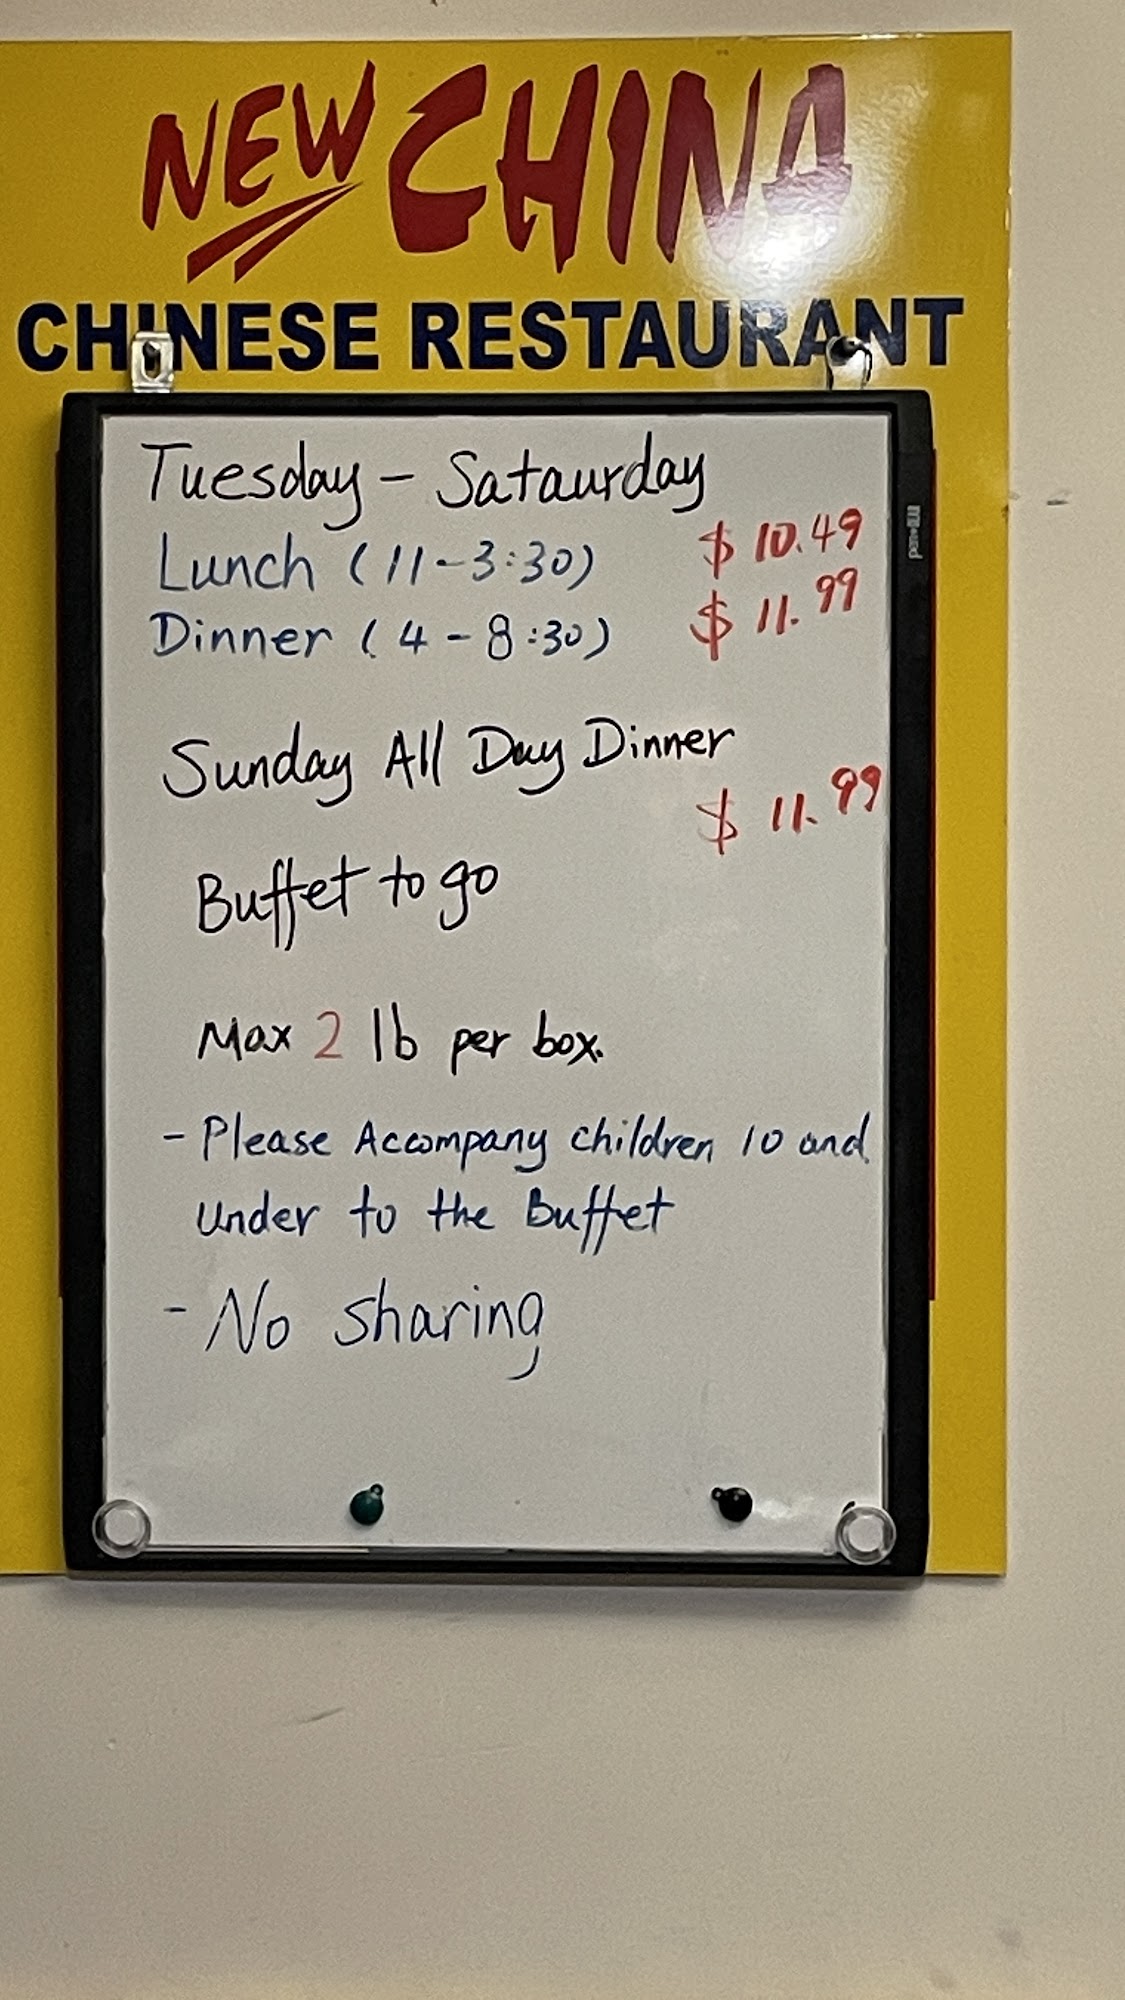 NEW CHINA
CHINESE RESTAURANT
Tuesday - Sataurday
Lunch (11-3:30) $10.49
Dinner (4-8:30) $11.99
Sunday All Day Dinner
$11.99
Buffet to go
Max 2 lb per box.
- Please Accompany children 10 and
under to the Buffet
- No sharing